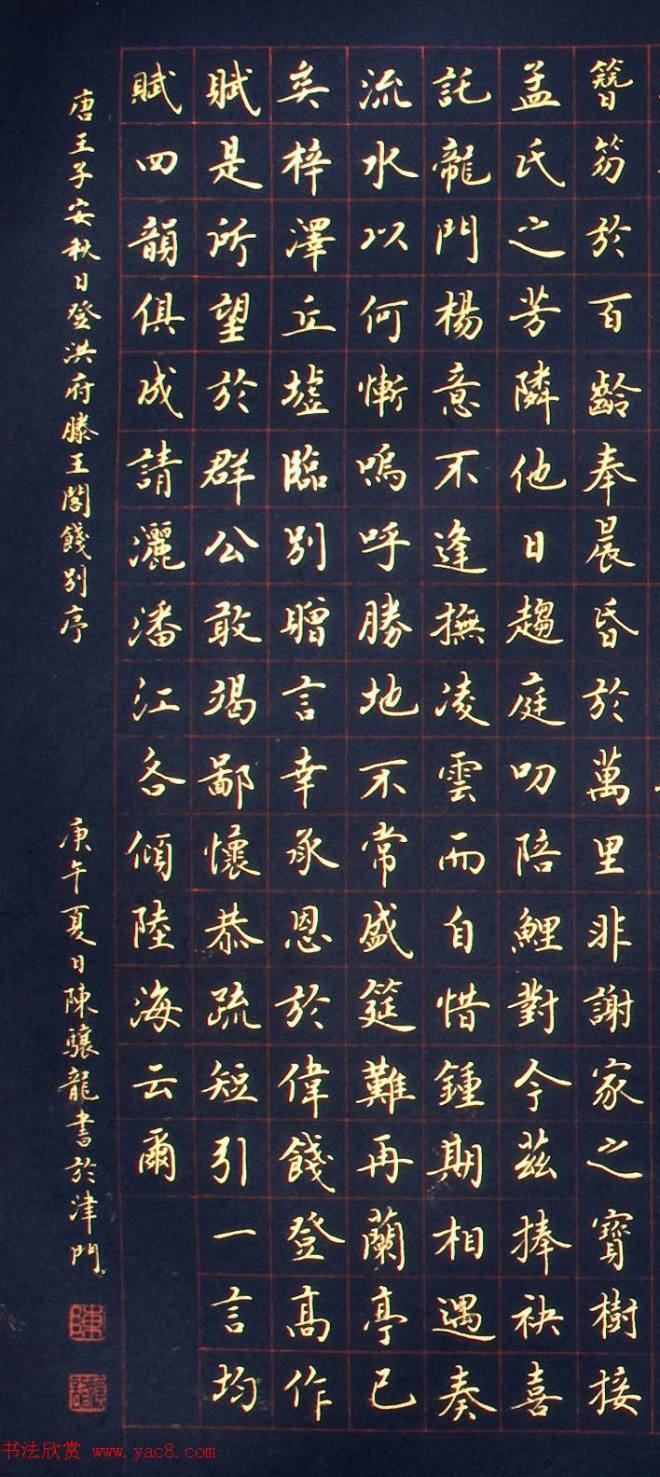 簪笏於百齡奉晨昏於萬里非謝家之寶樹接
孟氏之芳隣他日趨庭叨陪鯉對今茲捧袂喜
託龍門楊意不逢撫凌雲而自惜鍾期相遇奏
流水以何慚嗚呼勝地不常盛筵難再蘭亭已
矣梓澤丘墟臨別贈言幸承恩於偉餞登高作
賦是所望於群公敢竭鄙懷恭疏短引一言均
賦四韻俱成請灑潘江各傾陸海云爾
唐王子安秋日登洪府滕王閣餞別序
庚午夏日陳驤龍書於津門
書法欣赏 www.yac8.com